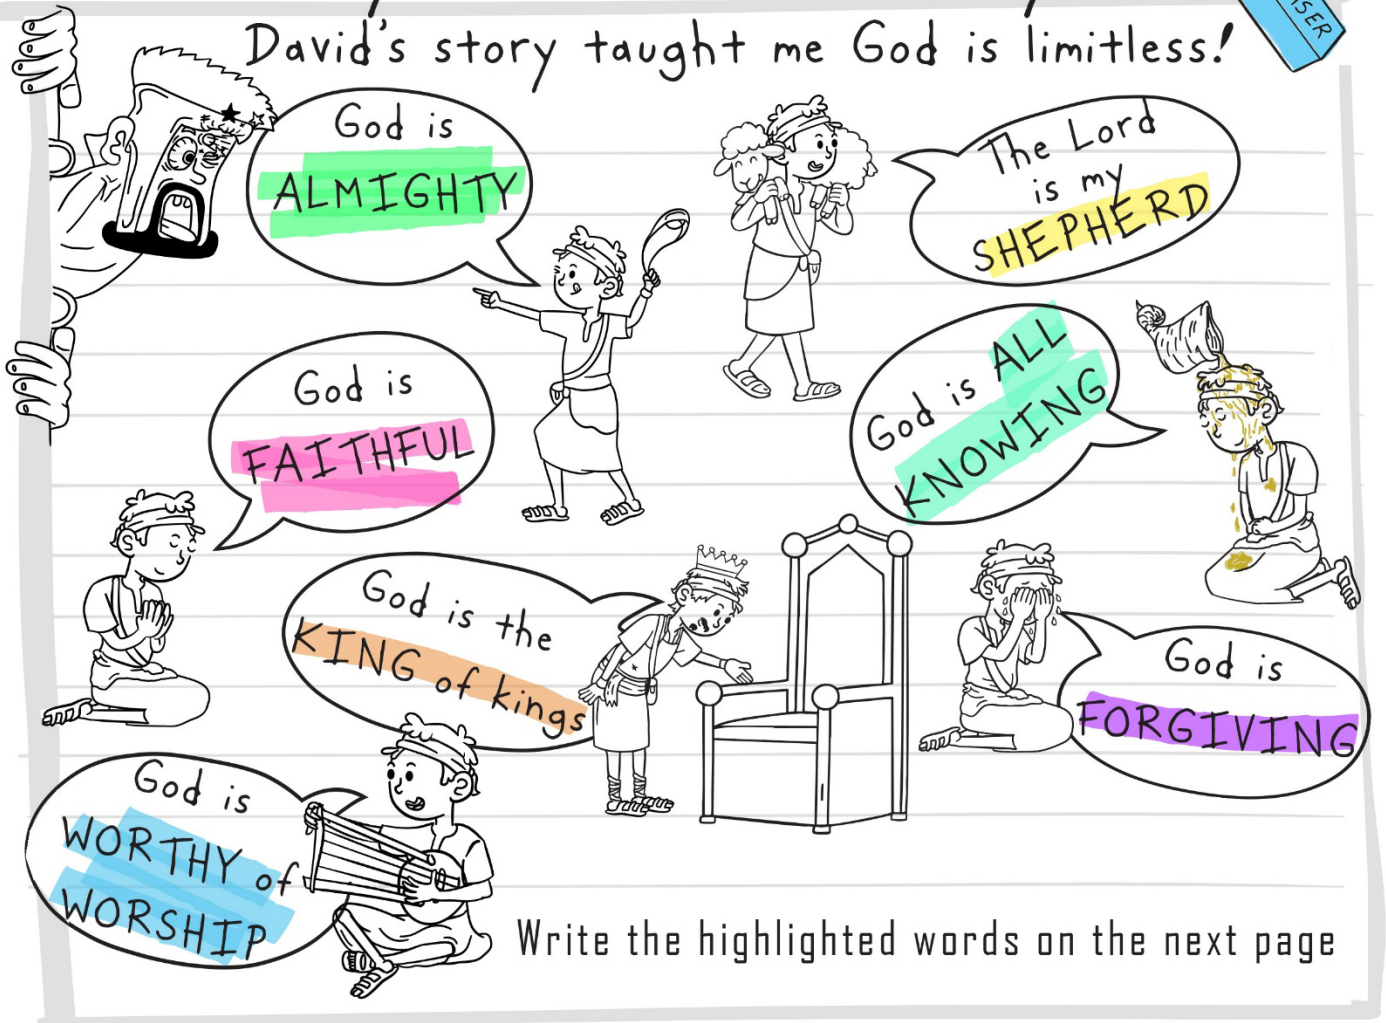 David's story taught me God is limitless!
God is
ALMIGHTY
The Lord
is my
SHEPHERD
God is
FAITHFUL
God is ALL
KNOWING
God is the
KING of kings
God is
FORGIVING
God is
WORTHY of
WORSHIP
Write the highlighted words on the next page